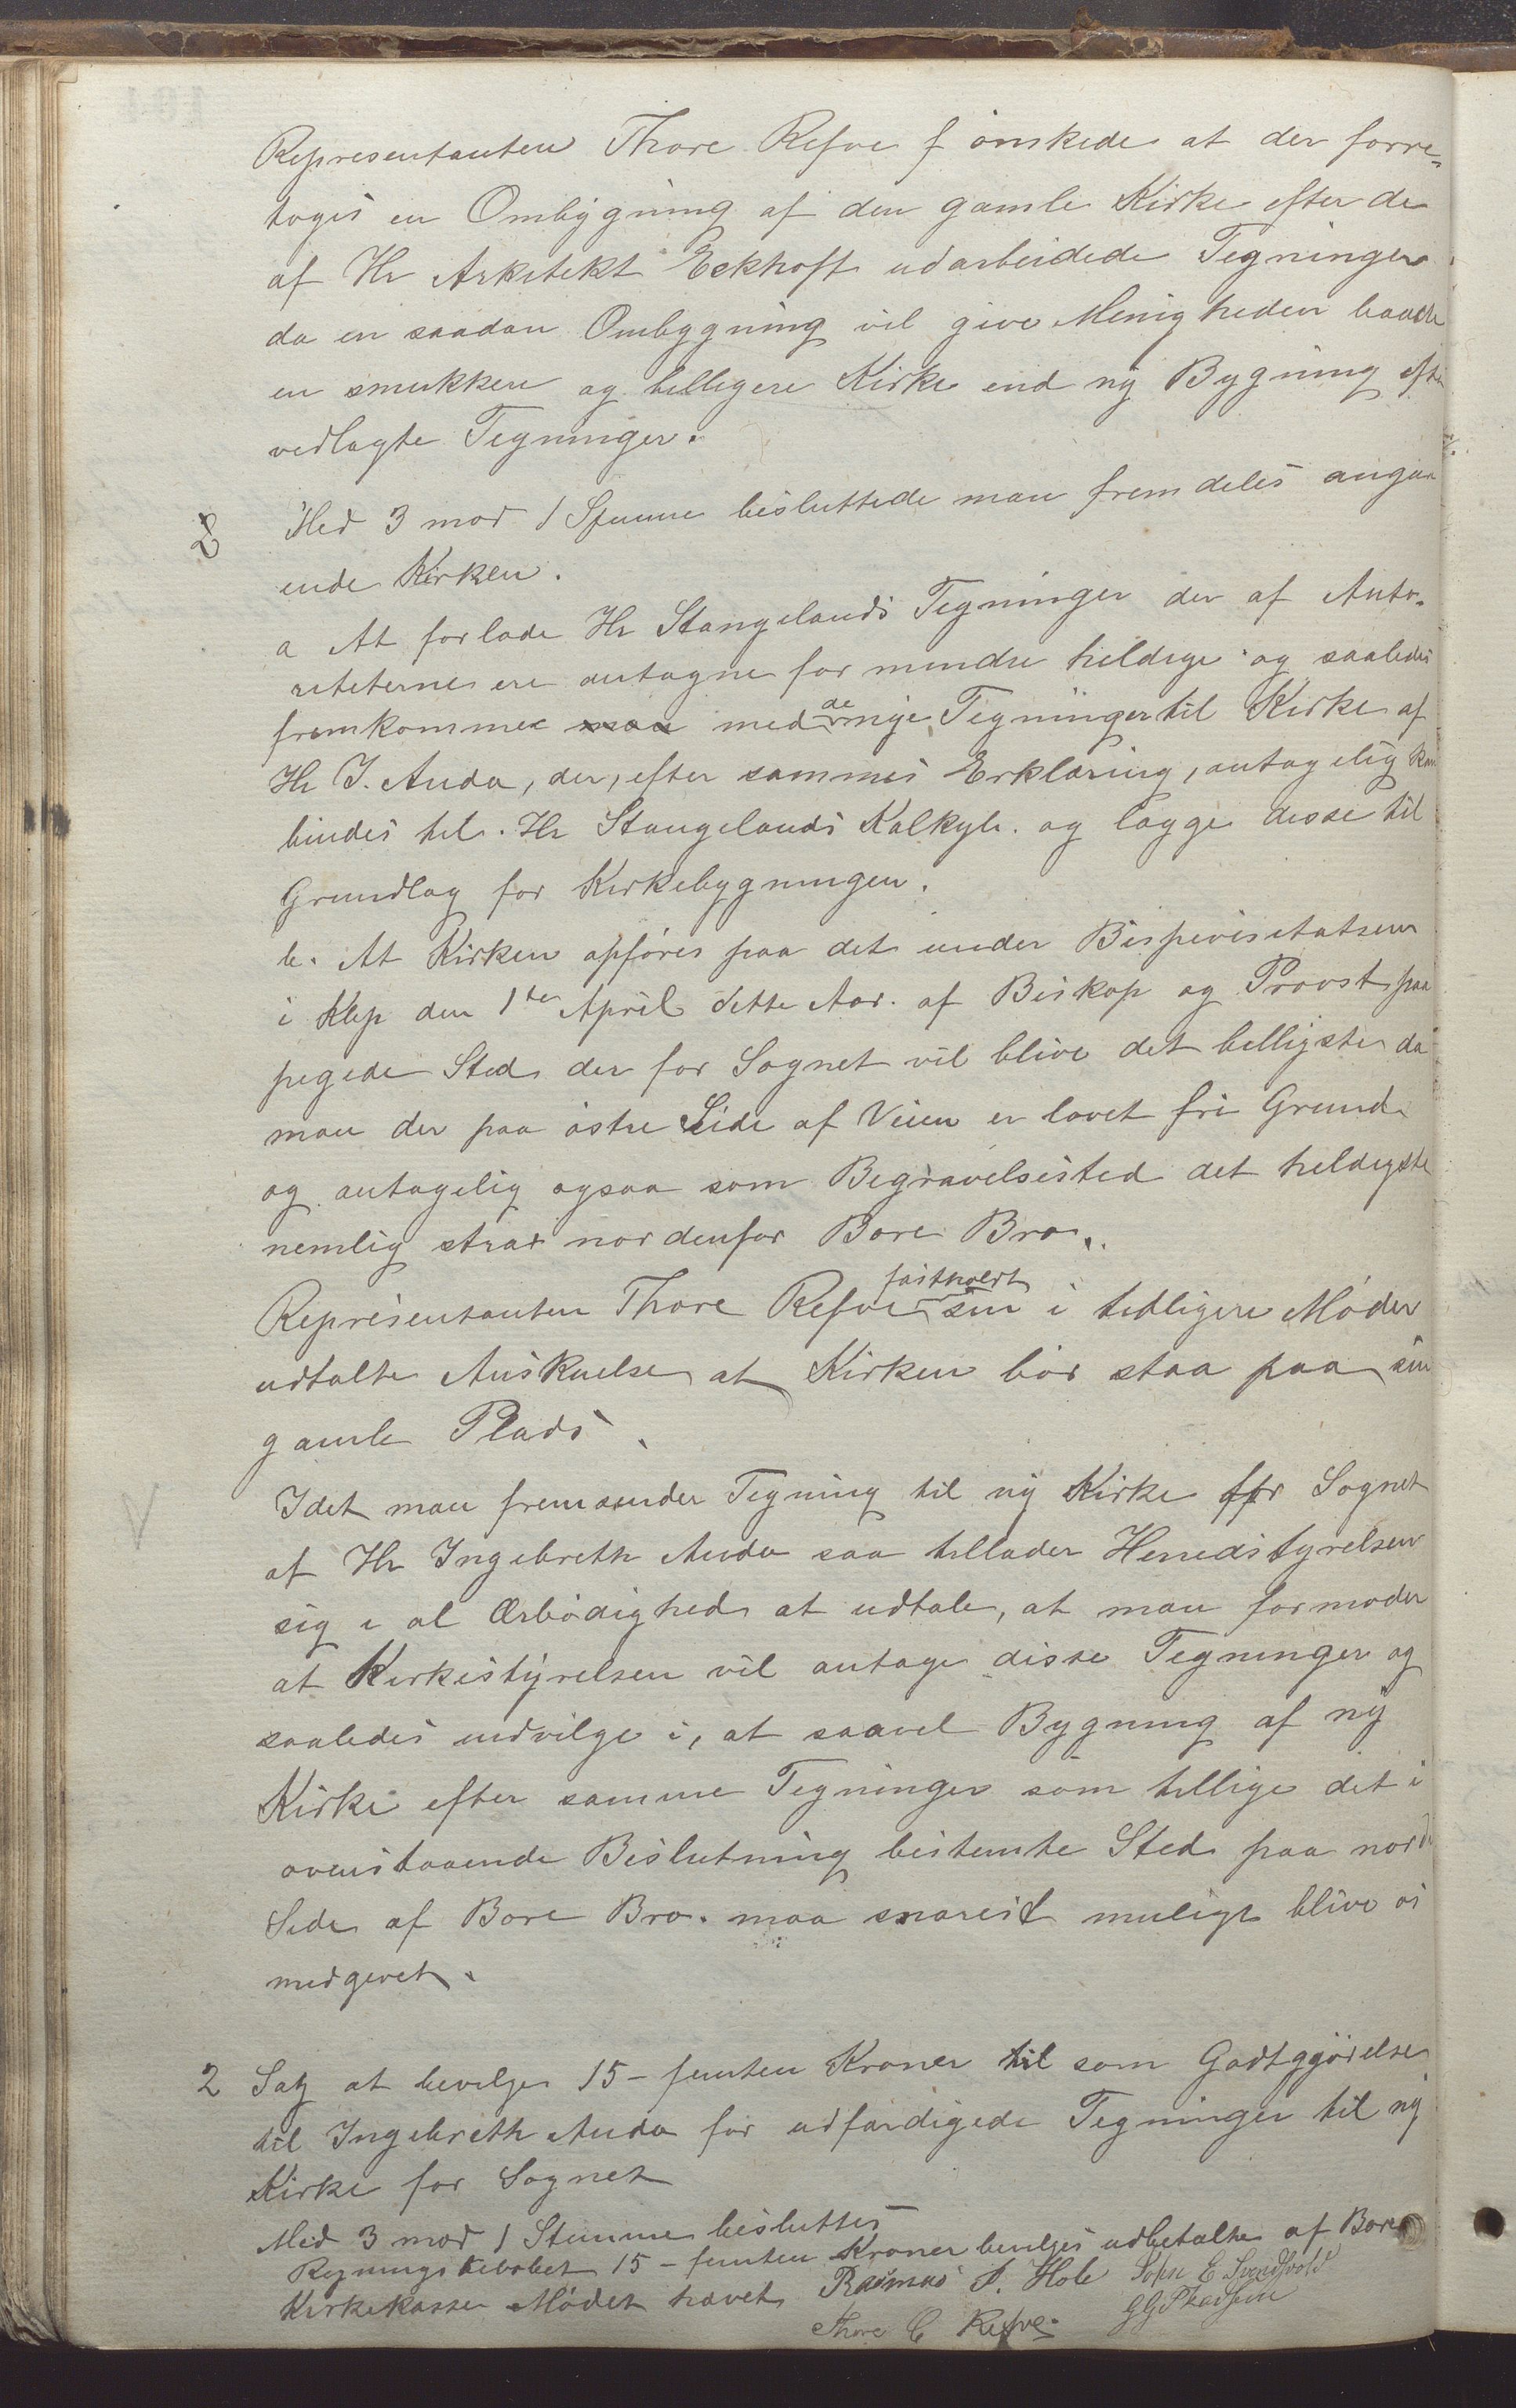 Representanten Thore Refve f ønskede at der forre-
toges en Ombygning af den gamle Kirke efter de
af Hr Arkitekt Eckhoff udarbeidede Tegninger
da en saadan Ombygning vil give Menigheden baade
en smukkere og billigere Kirke end ny Bygning efter
vedlagte Tegninger.
2 Med 3 mod 1 Stemme besluttede man fremdeles angaa
ende Kirken.
a At forlade Hr Stangelands Tegninger der af Auto-
riteterne ere antagne for mindre heldige og saaledes
fremkomme med de nye Tegninger til Kirke af
Hr I. Auda, der, efter sammes Erklæring, antagelig kan
bindes til Hr Stangelands Kalkyle. og lægge disse til
Grundlag for Kirkebygningen.
b. At Kirken opføres paa det under Bispevisitatsen
i Klep den 1ste April dette Aar. af Biskop og Provst paa
pegede Sted der for Sognet vil blive det billigste da
man der paa østre Side af Veien er lovet fri Grund
og antagelig ogsaa som Begravelsessted det heldigste
nemlig strax nordenfor Bore Bro.
Representanten Thore Refve fastholdt sin i tidligere Møder
udtalte Anskuelse at Kirken bør staa paa sin
gamle Plads.
Idet man fremsender Tegning til ny Kirke for Sognet
af Hr Ingebreth Auda saa tillader Heredstyrelsen
sig i al Ærbødighed at udtale, at man formoder
at Kirkestyrelsen vil antage disse Tegninger og
saaledes indvilge i, at saavel Bygning af ny
Kirke efter samme Tegninger som tillige det i
ovenstaaende Beslutning bestemte Sted paa nord
Side af Bore Bro. maa snarest muligt blive os
medgivet.
2 Sag at bevilge 15 - femten Kroner til som Godtggjørelse
til Ingebreth Auda for udfærdigede Tegninger til ny
Kirke for Sognet
Med 3 mod 1 Stemme besluttes
Regningsbeløbet 15 - femten Kroner bevilges udbetalte af Bore
Kirkekasse Mødet hævet Rasmus S. Hole
Thore C Refve.